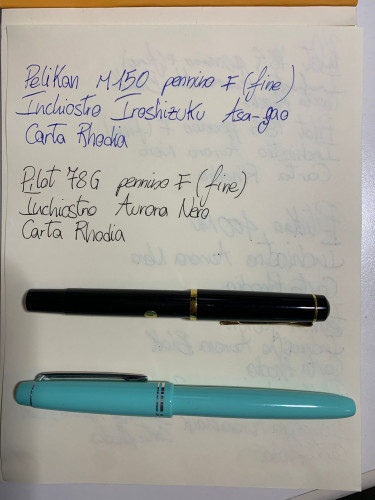 Pelikan M150 pennino F (fine)
Inchiostro Iroshizuku Asa-gao
Carta Rhodia
Pilot 78G pennino F (fine)
Inchiostro Aurora Nero
Carta Rhodia